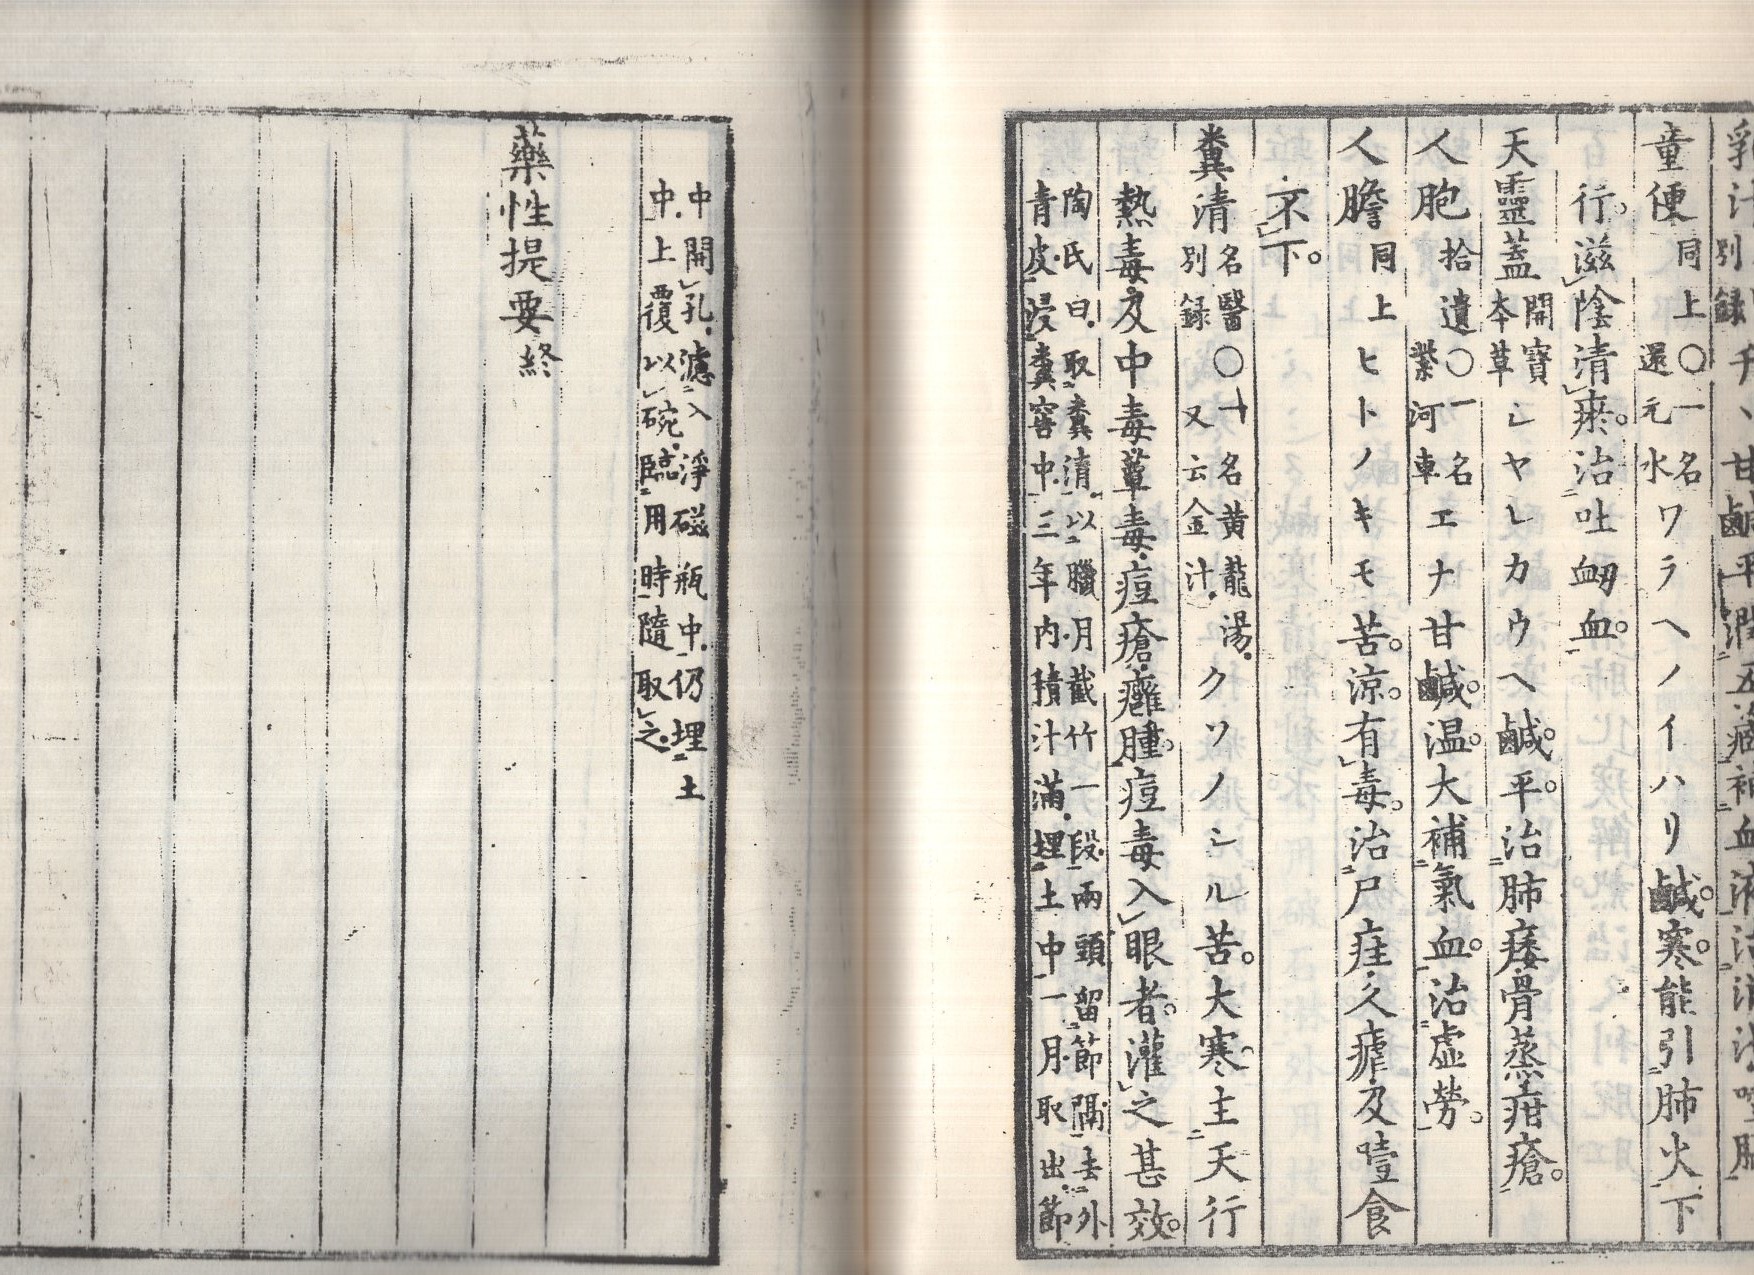 乳汁 別録 チヽ 甘鹹平潤五藏補血液
童便 同上○一名還元水 ワラヘノイハリ 鹹。寒。能引肺火下
行。滋陰清瘀。治吐衂血。
天靈蓋 開寶本草 シヤレカウヘ 鹹。平。治肺痿骨蒸疳瘡。
人胞 拾遺○一名紫河車 エナ 甘鹹。温。大補氣血。治虚勞。
人膽 同上 ヒトノキモ 苦。涼。有毒。治尸疰久瘧及噎食
不下。
糞清 名醫別録○一名黄龍湯又云金汁 クソノシル 苦。大寒。主天行
熱毒及中毒蕈毒痘瘡癰腫。痘毒入眼者。灌之甚效。
陶氏曰取糞清以臘月截竹一段兩頭留節隔去外
青皮浸糞窖中三年内積汁滿埋土中一月取出節
中開孔濾入淨磁瓶中仍埋土
中上覆以碗臨用時隨取之
藥性提要終